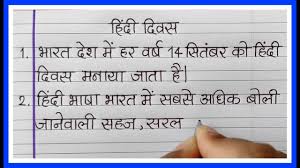 हिंदी दिवस
1. भारत देश में हर वर्ष 14 सितंबर को हिंदी
दिवस मनाया जाता है|
2. हिंदी भाषा भारत में सबसे अधिक बोली
जानेवाली सहज, सरल